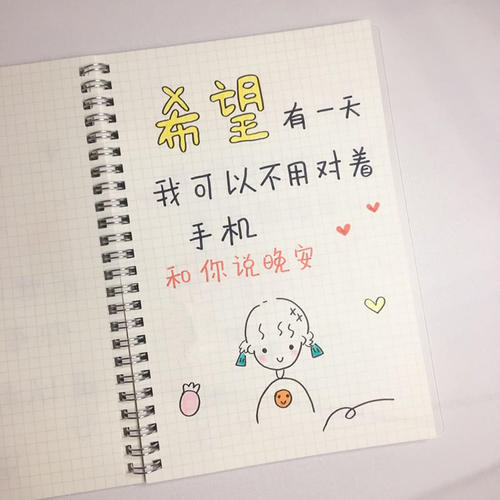 希望有一天
我可以不用对着
手机
和你说晚安